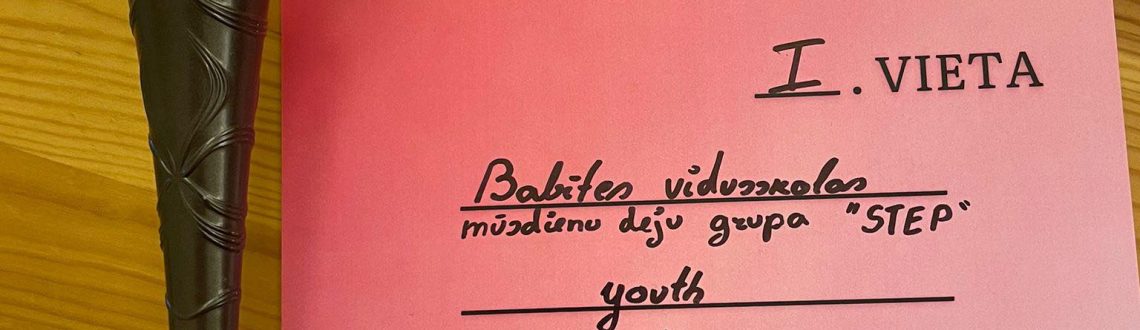 I. VIETA
Babītes vidusskolas
mūsdienu deju grupa "STEP"
youth